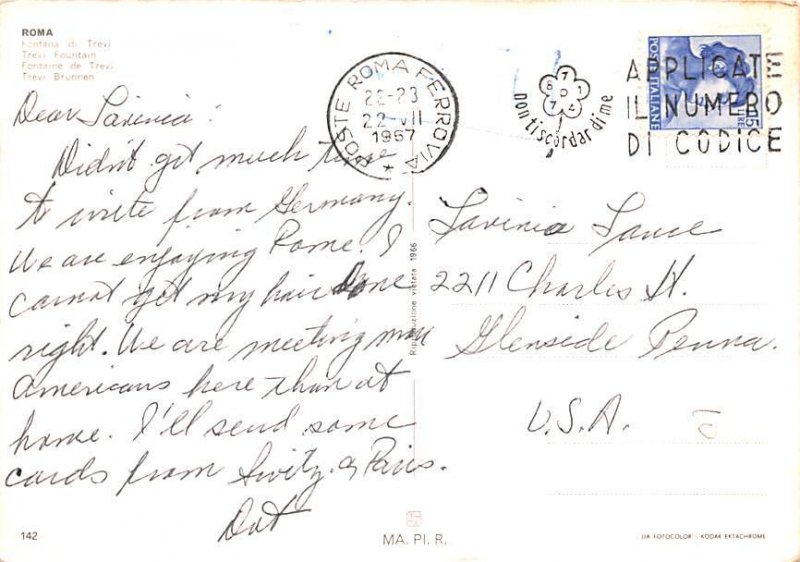 ROMA
Fontana di Trevi
Trevi Fountain
Fontaine de Trevi
Trevi Brunnen
POSTE ROMA FERROVIA
22-23
22-VII
1967
*
non ti scordar di me
APPLICATE
IL NUMERO
DI CODICE
POSTE ITALIANE
Dear Lavinia:
Didn't get much time
to write from Germany.
We are enjoying Rome. I
cannot get my hair done
right. We are meeting more
Americans here than at
home. I'll send some
cards from Switz. & Paris.
Dot
Lavinia Lance
2211 Charles St.
Glenside Penna.
U.S.A.
Riproduzione vietata 1966
142
MA. PI. R.
DA FOTOCOLOR KODAK EKTACHROME